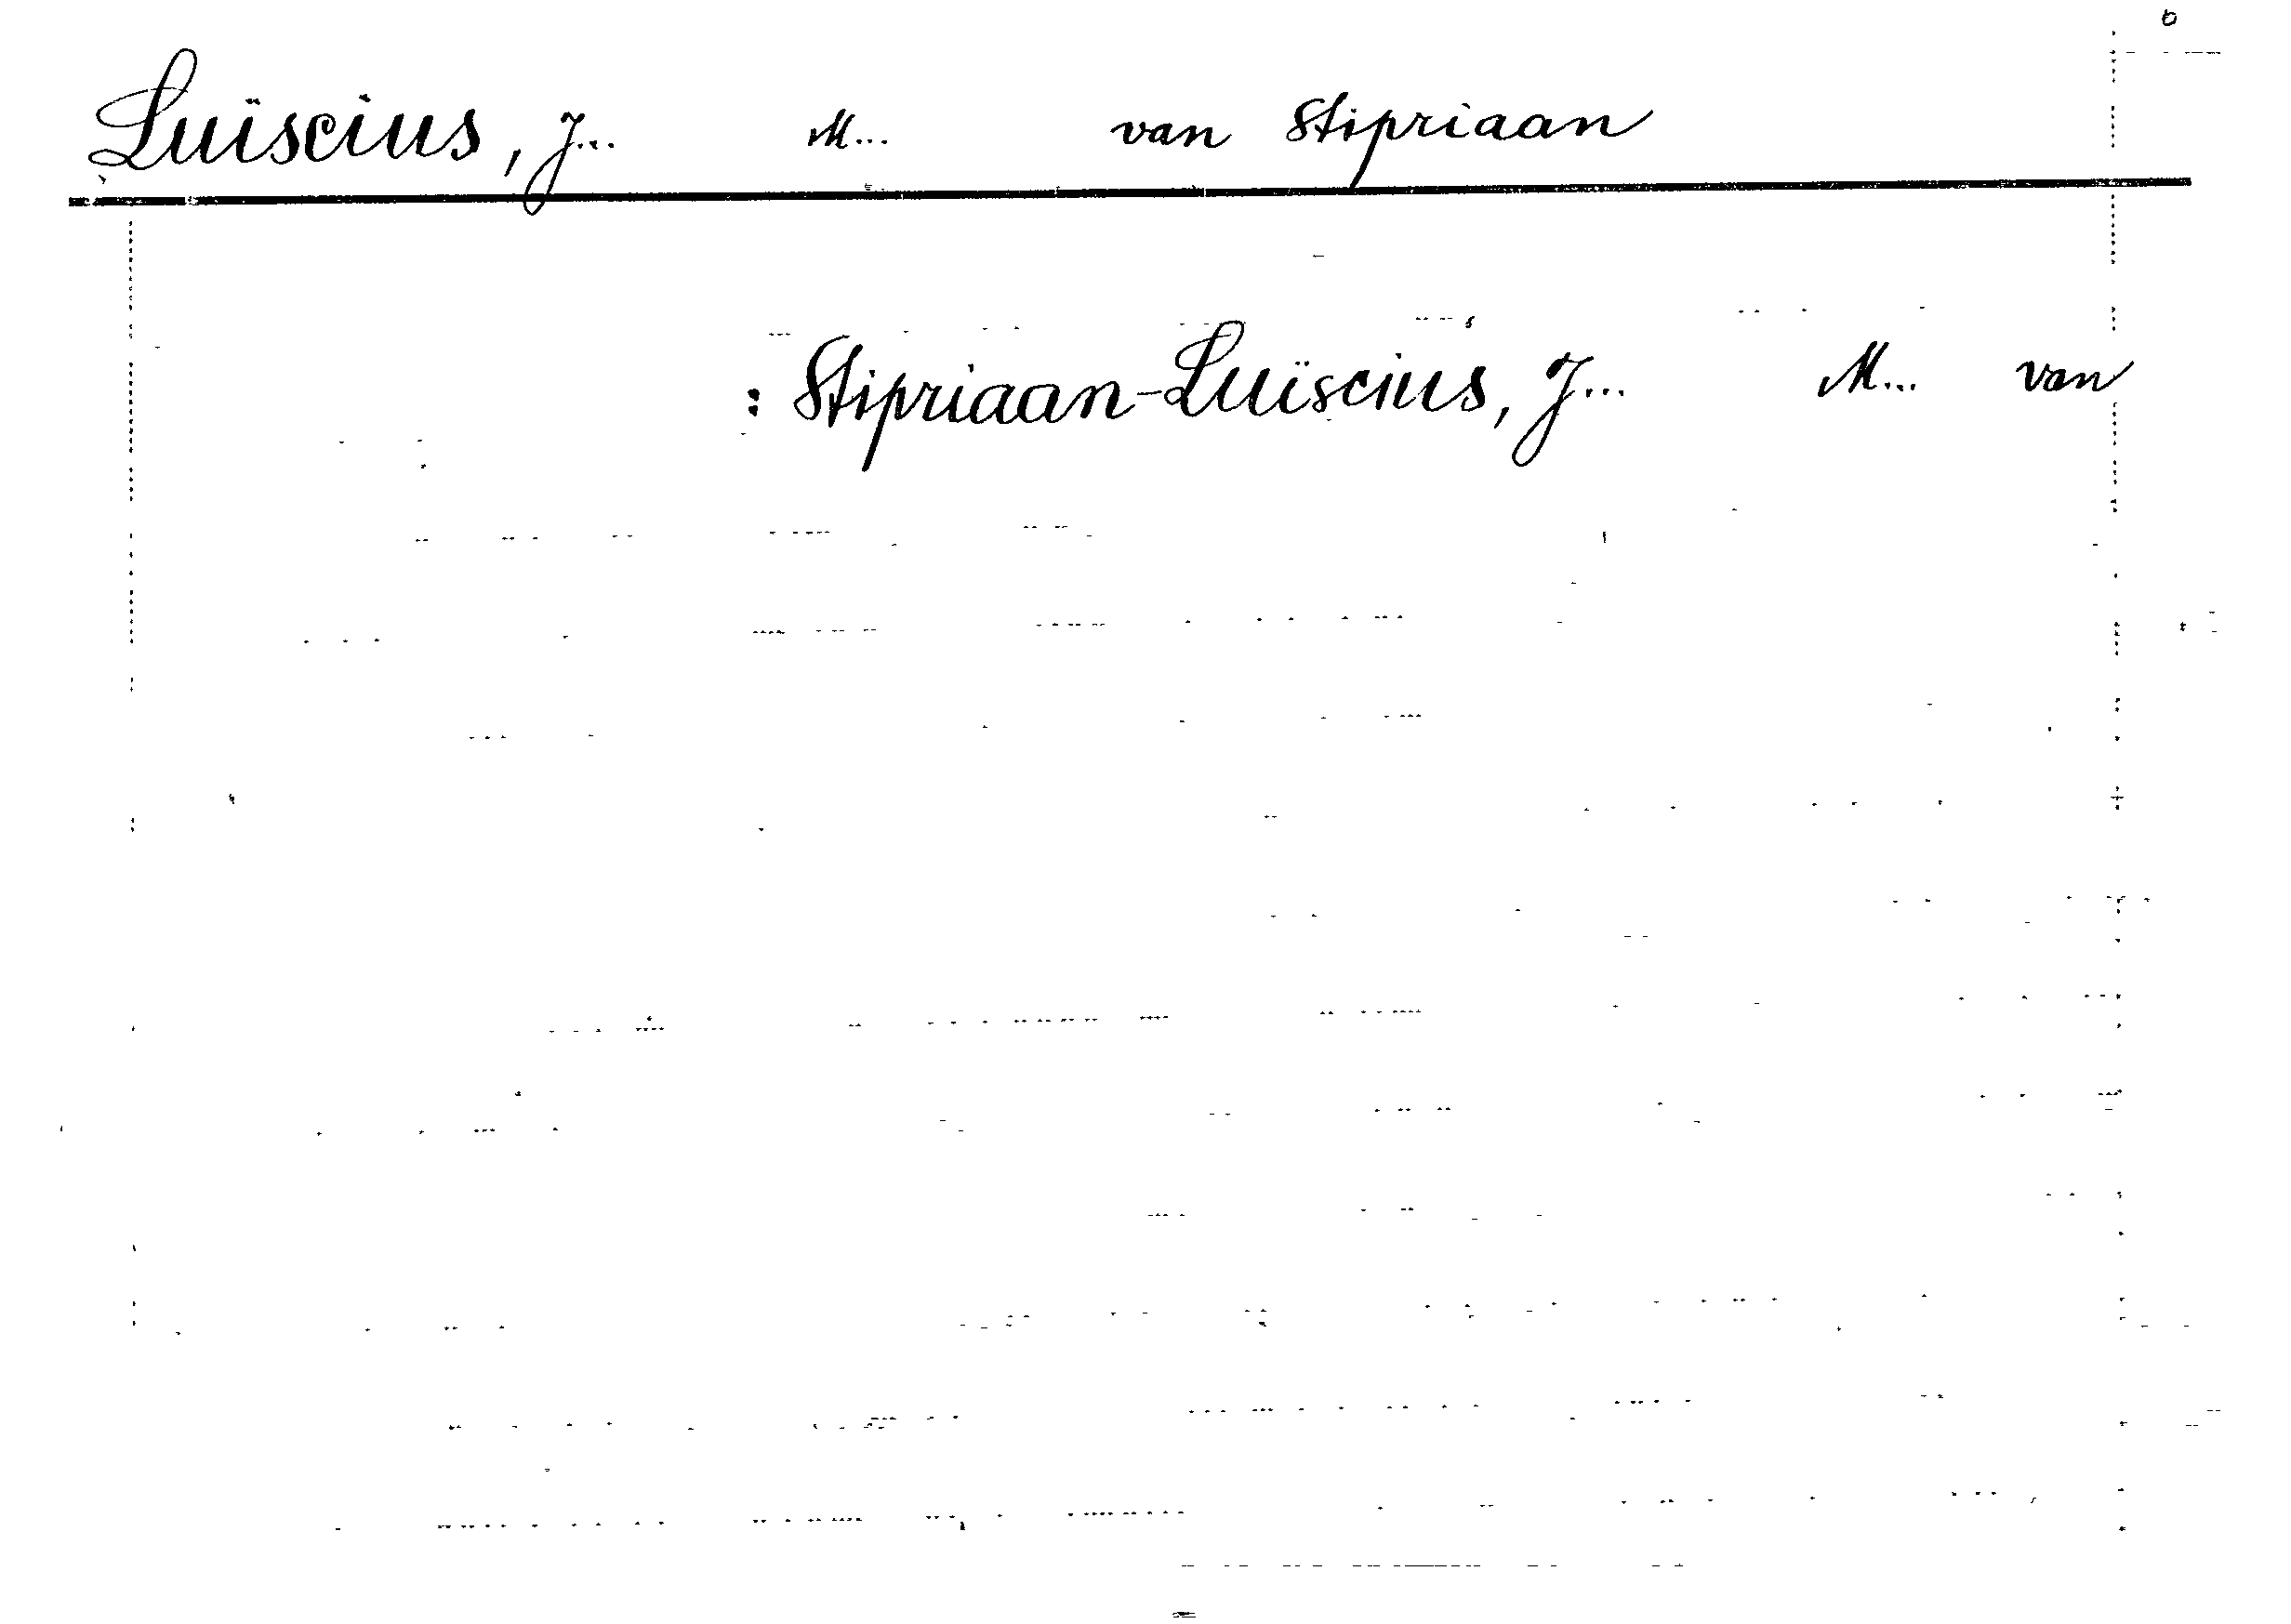 Luïscius, J... M... van Stipriaan
: Stipriaan-Luïscius, J... M... van